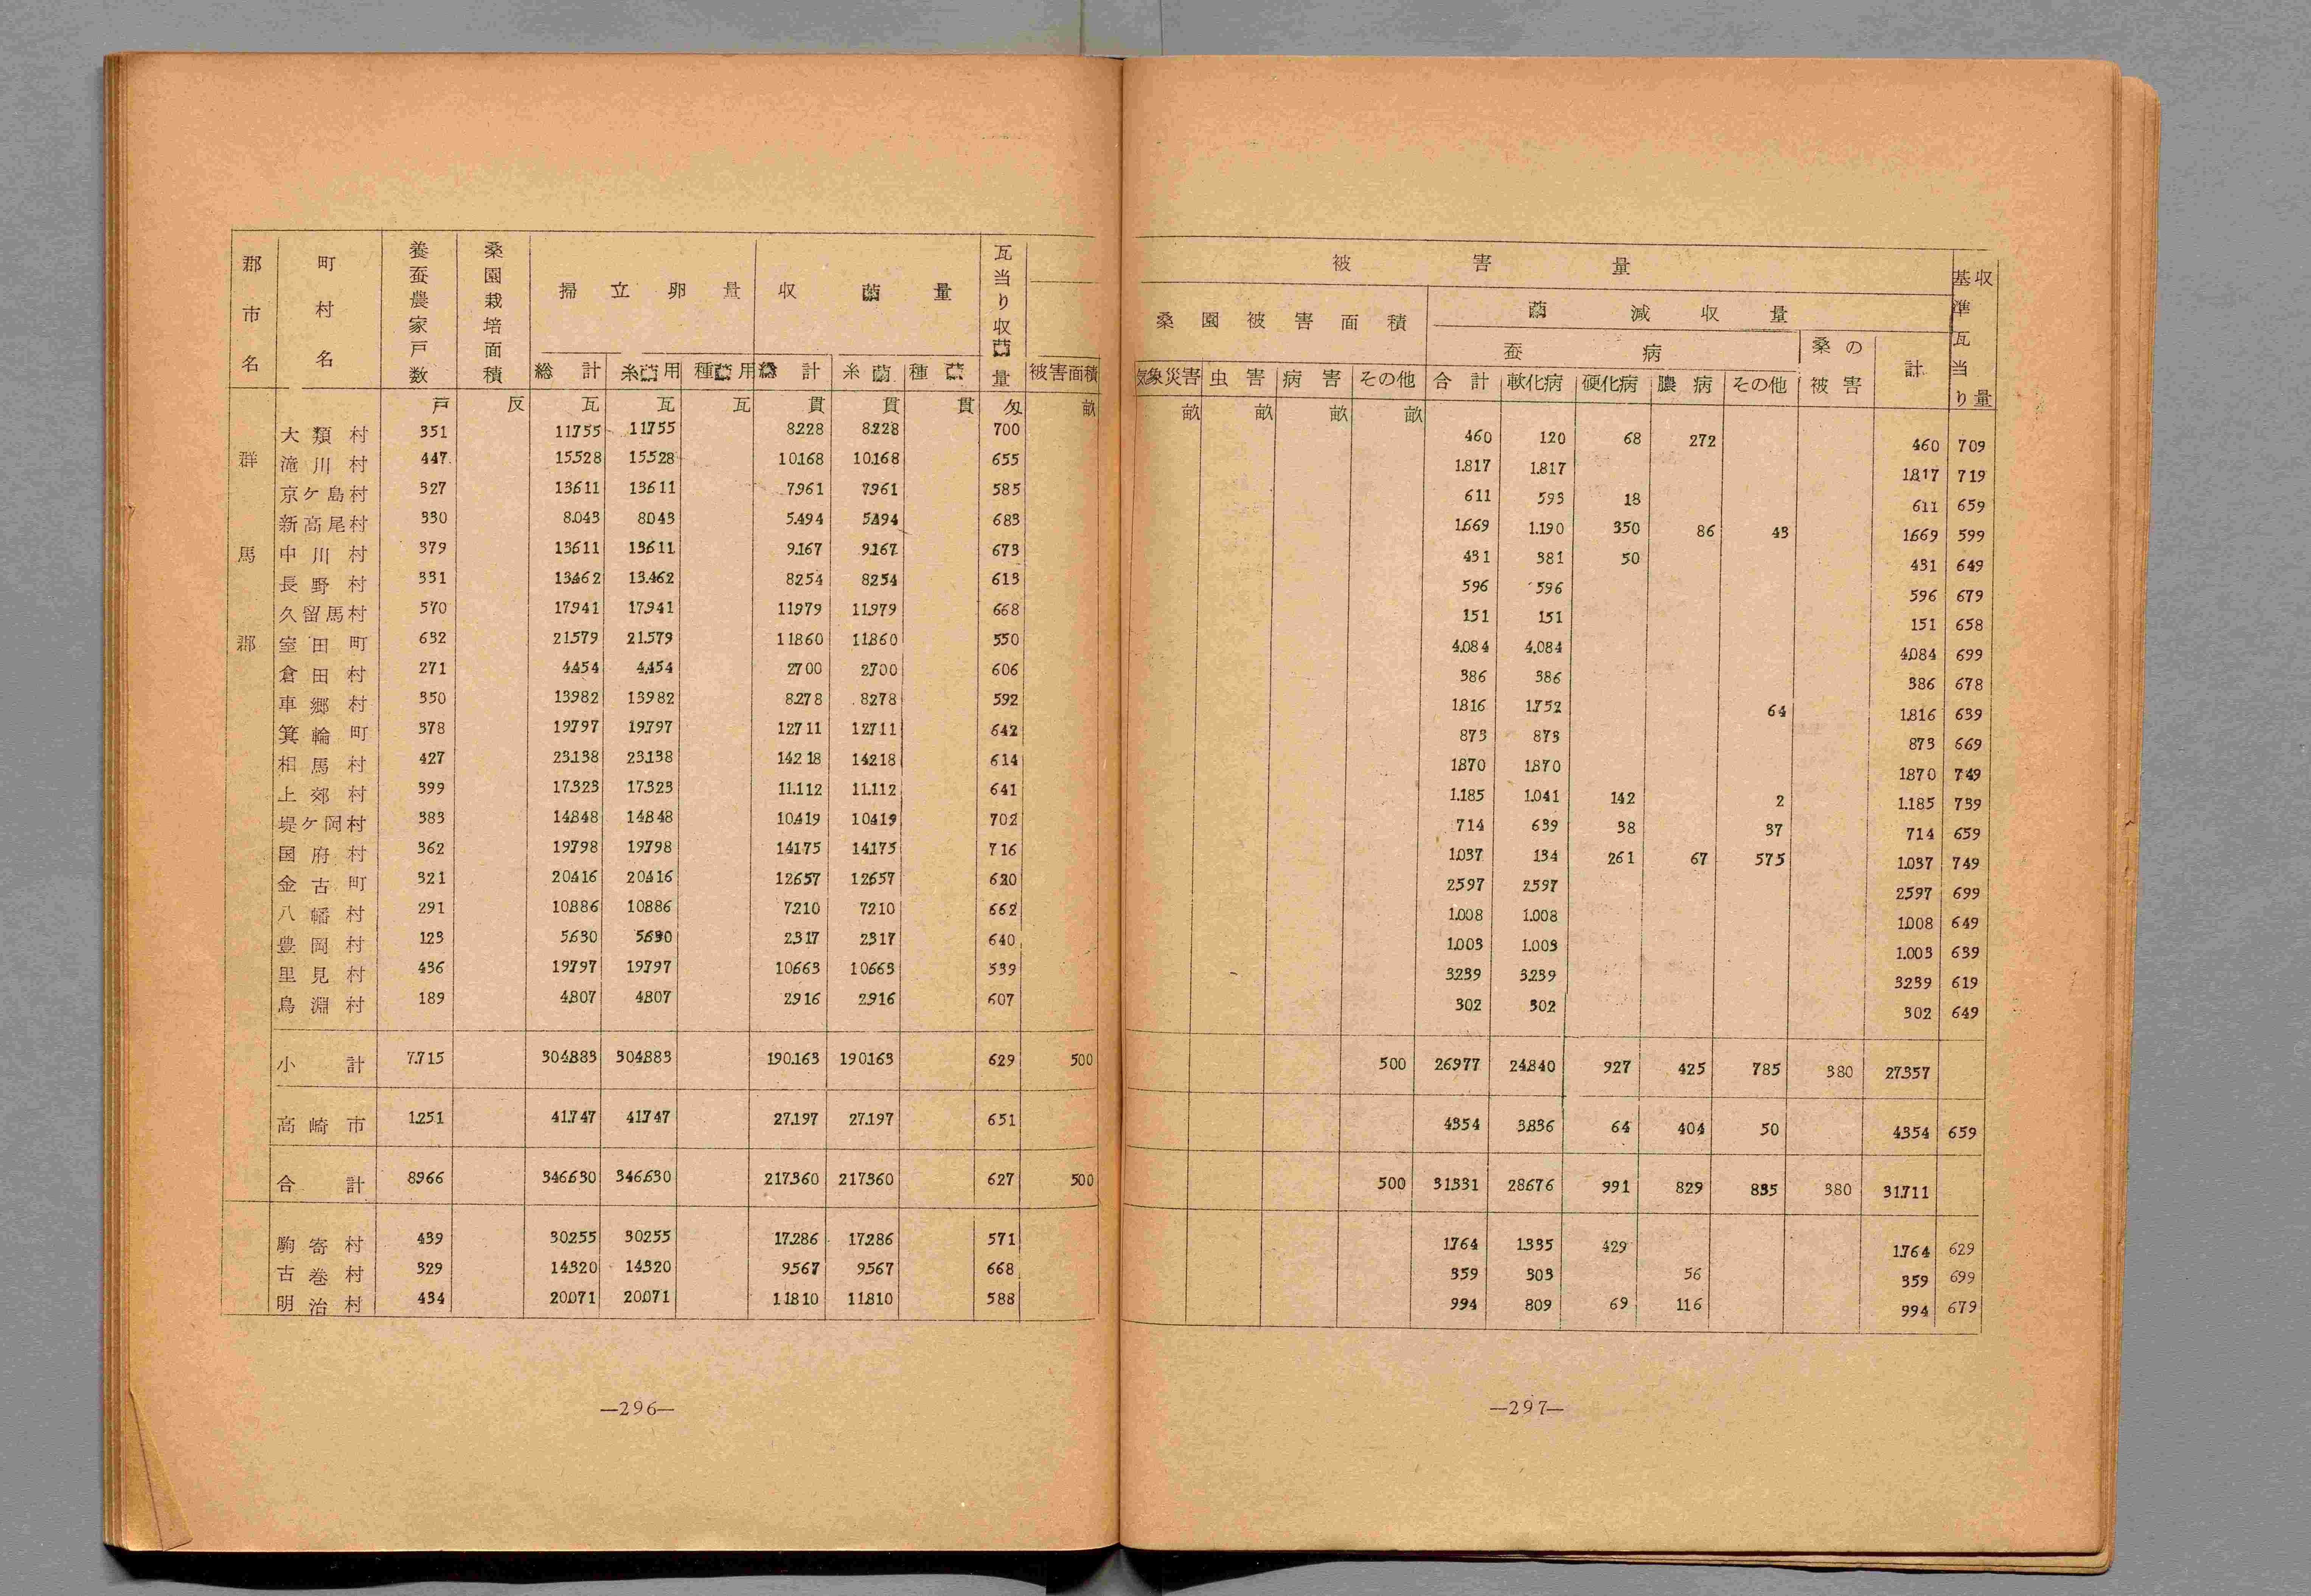 郡市名 町村名 養蚕農家戸数 桑園栽培面積 掃立卵量 収繭量 瓦当り収繭量
総計 糸繭用 種繭用 総計 糸繭 種繭 被害面積
戸 反 瓦 瓦 瓦 貫 貫 貫 匁 畝
群馬郡
大類村 351 11.755 11.755 8.228 8.228 700
滝川村 447 15.528 15.528 10.168 10.168 655
京ケ島村 327 13.611 13.611 7.961 7.961 585
新高尾村 330 8.043 8.043 5.494 5.494 683
中川村 379 13.611 13.611 9.167 9.167 673
長野村 331 13.462 13.462 8.254 8.254 613
久留馬村 570 17.941 17.941 11.979 11.979 668
室田町 632 21.579 21.579 11.860 11.860 550
倉田村 271 4.454 4.454 2.700 2.700 606
車郷村 350 13.982 13.982 8.278 8.278 592
箕輪町 378 19.797 19.797 12.711 12.711 642
相馬村 427 23.138 23.138 14.218 14.218 614
上郊村 399 17.323 17.323 11.112 11.112 641
堤ケ岡村 383 14.848 14.848 10.419 10.419 702
国府村 362 19.798 19.798 14.175 14.175 716
金古町 321 20.416 20.416 12.657 12.657 620
八幡村 291 10.886 10.886 7.210 7.210 662
豊岡村 123 5.630 5.630 2.317 2.317 640
里見村 436 19.797 19.797 10.663 10.663 539
烏淵村 189 4.807 4.807 2.916 2.916 607
小計 7.715 304.883 304.883 190.163 190.163 629 500
高崎市 1.251 41.747 41.747 27.197 27.197 651
合計 8.966 346.630 346.630 217.360 217.360 627 500
駒寄村 439 30.255 30.255 17.286 17.286 571
古巻村 329 14.320 14.320 9.567 9.567 668
明治村 434 20.071 20.071 11.810 11.810 588
—296—
被害量 基準瓦当り収量
桑園被害面積 繭減収量
蚕病 桑の被害 計
気象災害 虫害 病害 その他 合計 軟化病 硬化病 膿病 その他
畝 畝 畝 畝
460 120 68 272 460 709
1.817 1.817 1.817 719
611 593 18 611 659
1.669 1.190 350 86 43 1.669 599
431 381 50 431 649
596 596 596 679
151 151 151 658
4.084 4.084 4.084 699
386 386 386 678
1.816 1.752 64 1.816 639
873 873 873 669
1.870 1.870 1.870 749
1.185 1.041 142 2 1.185 739
714 639 38 37 714 659
1.037 134 261 67 575 1.037 749
2.597 2.597 2.597 699
1.008 1.008 1.008 649
1.003 1.003 1.003 639
3.239 3.239 3.239 619
302 302 302 649
500 26.977 24.840 927 425 785 380 27.357
4.354 3.836 64 404 50 4.354 659
500 31.331 28.676 991 829 835 380 31.711
1.764 1.335 429 1.764 629
359 303 56 359 699
994 809 69 116 994 679
—297—